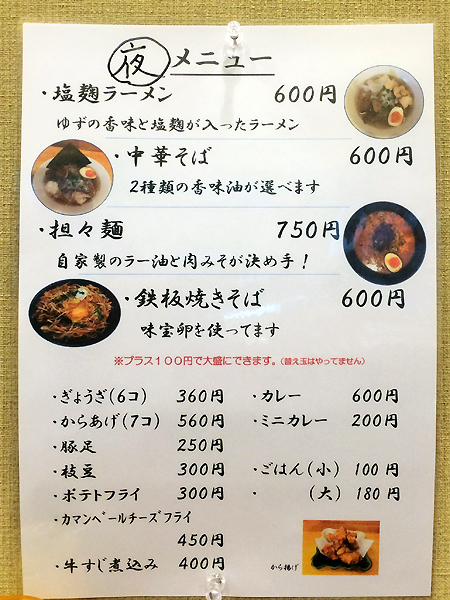 夜 メニュー
・塩麹ラーメン 600円
ゆずの香味と塩麹が入ったラーメン
・中華そば 600円
2種類の香味油が選べます
・担々麺 750円
自家製のラー油と肉みそが決め手!
・鉄板焼きそば 600円
味宝卵を使ってます
※プラス100円で大盛にできます。(替え玉はやってません)
・ぎょうざ(6コ) 360円
・からあげ(7コ) 560円
・豚足 250円
・枝豆 300円
・ポテトフライ 300円
・カマンベールチーズフライ
450円
・牛すじ煮込み 400円
・カレー 600円
・ミニカレー 200円
・ごはん(小) 100円
・ (大) 180円
から揚げ